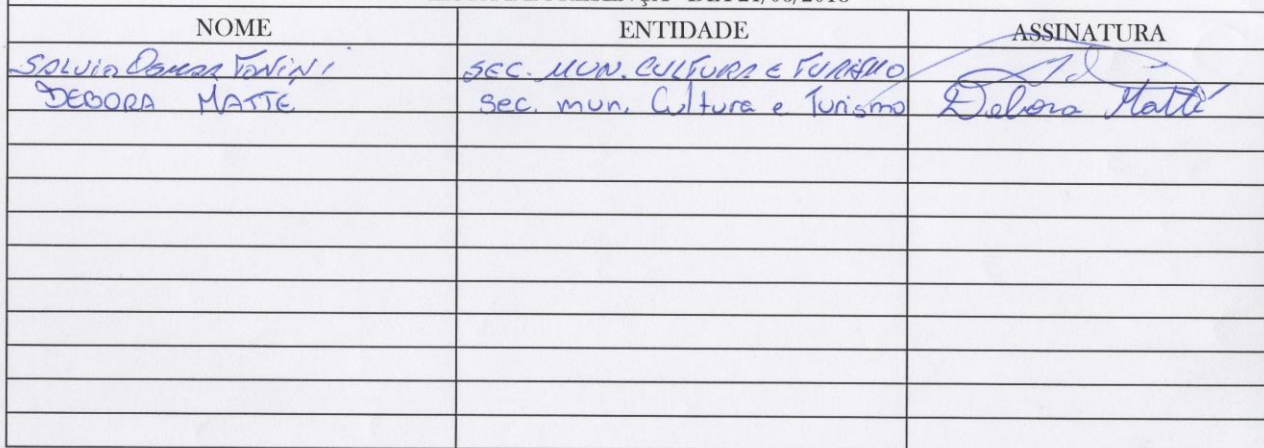 NOME ENTIDADE ASSINATURA
SALVIO OSMAR TONINI SEC. MUN. CULTURA E TURISMO
DEBORA MATTE Sec. mun. Cultura e Turismo Debora Matté